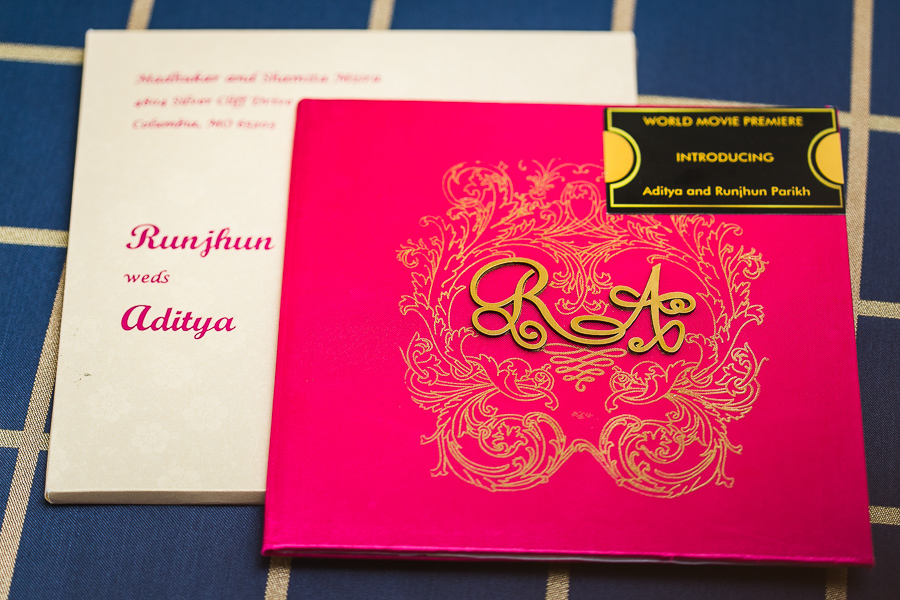 Madhukar and Shamita Misra
Silver Cliff Drive
Columbia, MO
Runjhun
weds
Aditya
WORLD MOVIE PREMIERE
INTRODUCING
Aditya and Runjhun Parikh
RA